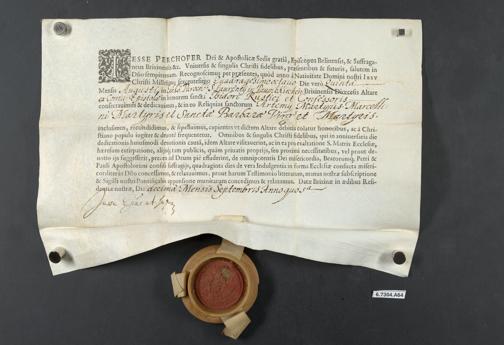 IESSE PERCHOFER Dei & Apostolicæ Sedis gratiâ, Episcopus Bellinensis, & Suffraga-
neus Brixinensis &c. Vniuersis & singulis Christi fidelibus, præsentibus & futuris, salutem in
Dño sempiternam. Recognoscimus per præsentes, quòd anno à Natiuitate Domini nostri IESV
Christi Millesimo sexcentesimo Quadragesimo octauo Die verò Quinta
Mensis Augusti in S. Laurentij Brixinensis Diœcesis Altare
in honorem sancti Isidori Rustici et Confessoris
consecrauimus & dedicauimus, & in eo Reliquias sanctorum Artemij Martyris Marcelli
ni Martyris et Sanctæ Barbaræ Virg: et Martyris.
inclusimus, recondidimus, & sigillauimus, cupientes vt dictum Altare debitis colatur honoribus, ac à Chri-
stiano populo iugiter & deuotè frequentetur. Omnibus & singulis Christi fidelibus, qui in anniuersaria die
dedicationis huiusmodi deuotionis causâ, idem Altare visitauerint, ac in ea pro exaltatione S. Matris Ecclesiæ,
hæresum extirpatione, alijsq; tam publicis, quàm priuatis proprijs, seu proximi necessitatibus, vel prout deuo-
tio ijs suggesserit, preces ad Deum piè effuderint, de omnipotentis Dei misericordia, Beatorumq; Petri &
Pauli Apostolorum eius confisi suffragijs, quadraginta dies de vera Indulgentia in forma Ecclesiæ consueta miseri-
corditer in Dño concessimus, & relaxauimus. prout harum Testimonio litterarum, manus nostræ subscriptione
& Sigilli nostri Pontificalis appensione munitarum concedimus & relaxamus. Data Brixinæ in ædibus Resi-
dentiæ nostræ, Die decima Mensis Septembris Anno quo supra
6.7304.A64